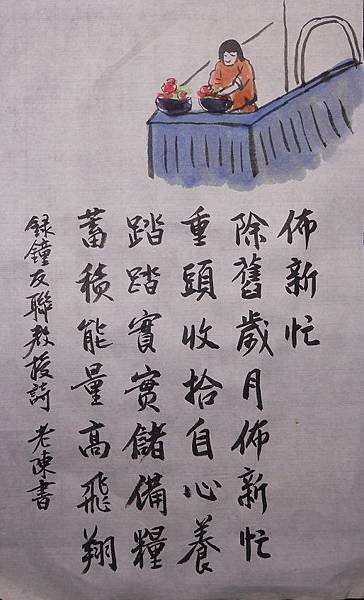 佈新忙
除舊歲月佈新忙
重頭收拾自心養
踏踏實實儲備糧
蓄積能量高飛翔
録鐘友聯教授詩 老陳書